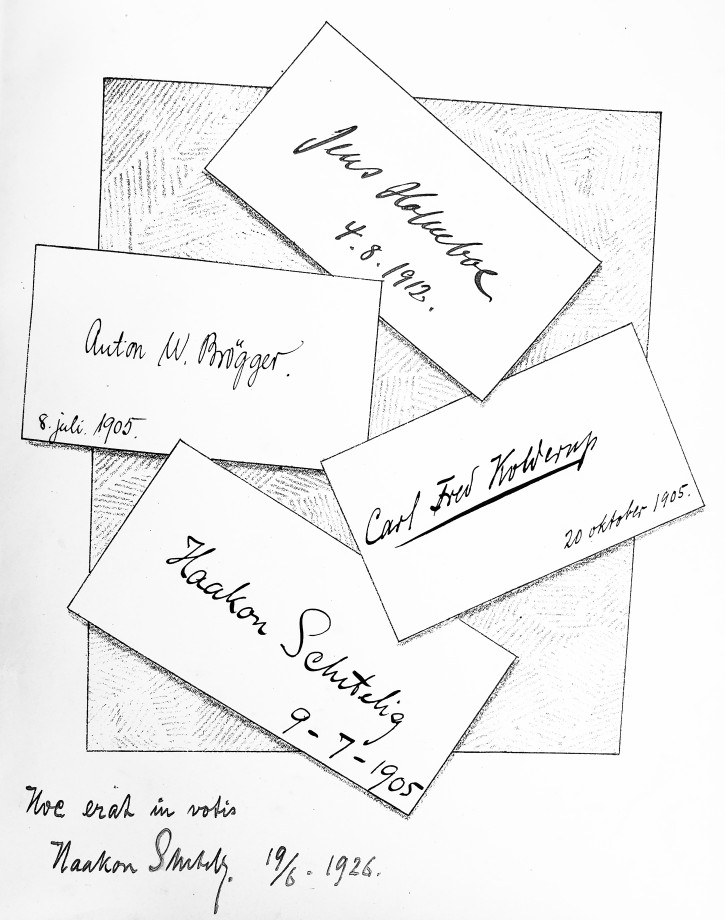 Jens Holmboe
4.8.1912.
Anton W. Brögger.
8. juli. 1905.
Carl Fred Kolderup
20 oktober 1905.
Haakon Schetelig
9-7-1905
Hoc erat in votis
Haakon Schetelig. 19/6. 1926.